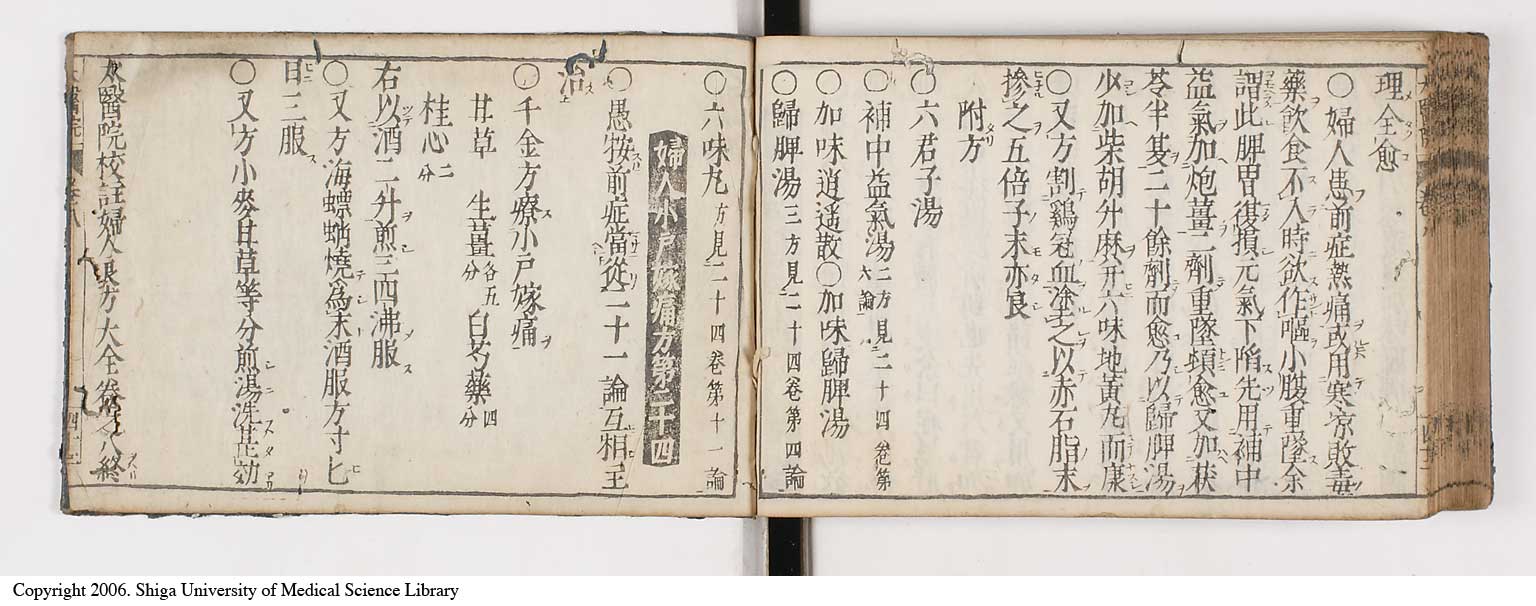 理全愈
○婦人患前症熱痛或用寒凉敗毒
藥飮食不入時欲作嘔小腹重墜余
謂此脾胃復損元氣下陷先用補中
益氣加炮薑二劑重墜頓愈又加茯
苓半夏二十餘劑而愈乃以歸脾湯
少加柴胡升麻幷六味地黃丸而康
○又方割鷄冠血塗之以赤石脂末
摻之五倍子末亦良
附方
○六君子湯
○補中益氣湯二方見二十四卷第六論
○加味逍遥散○加味歸脾湯
○歸脾湯三方見二十四卷第四論
○六味丸方見二十四卷第十一論
婦人小戸嫁痛方第二十四
○愚按前症當從二十一論互相主
治
○千金方療小戸嫁痛
甘草 生薑各五分 白芍藥四分
桂心二分
右以酒二升煎三四沸服
○又方海螵蛸燒爲末酒服方寸匕
日三服
○又方小麥甘草等分煎湯洗甚効
太醫院校註婦人良方大全卷之八終
Copyright 2006. Shiga University of Medical Science Library